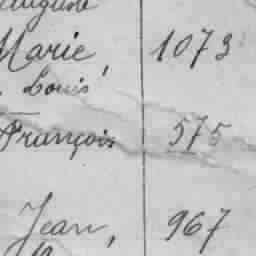 Auguste
Marie, 1073
Louis
François 575
Jean, 967